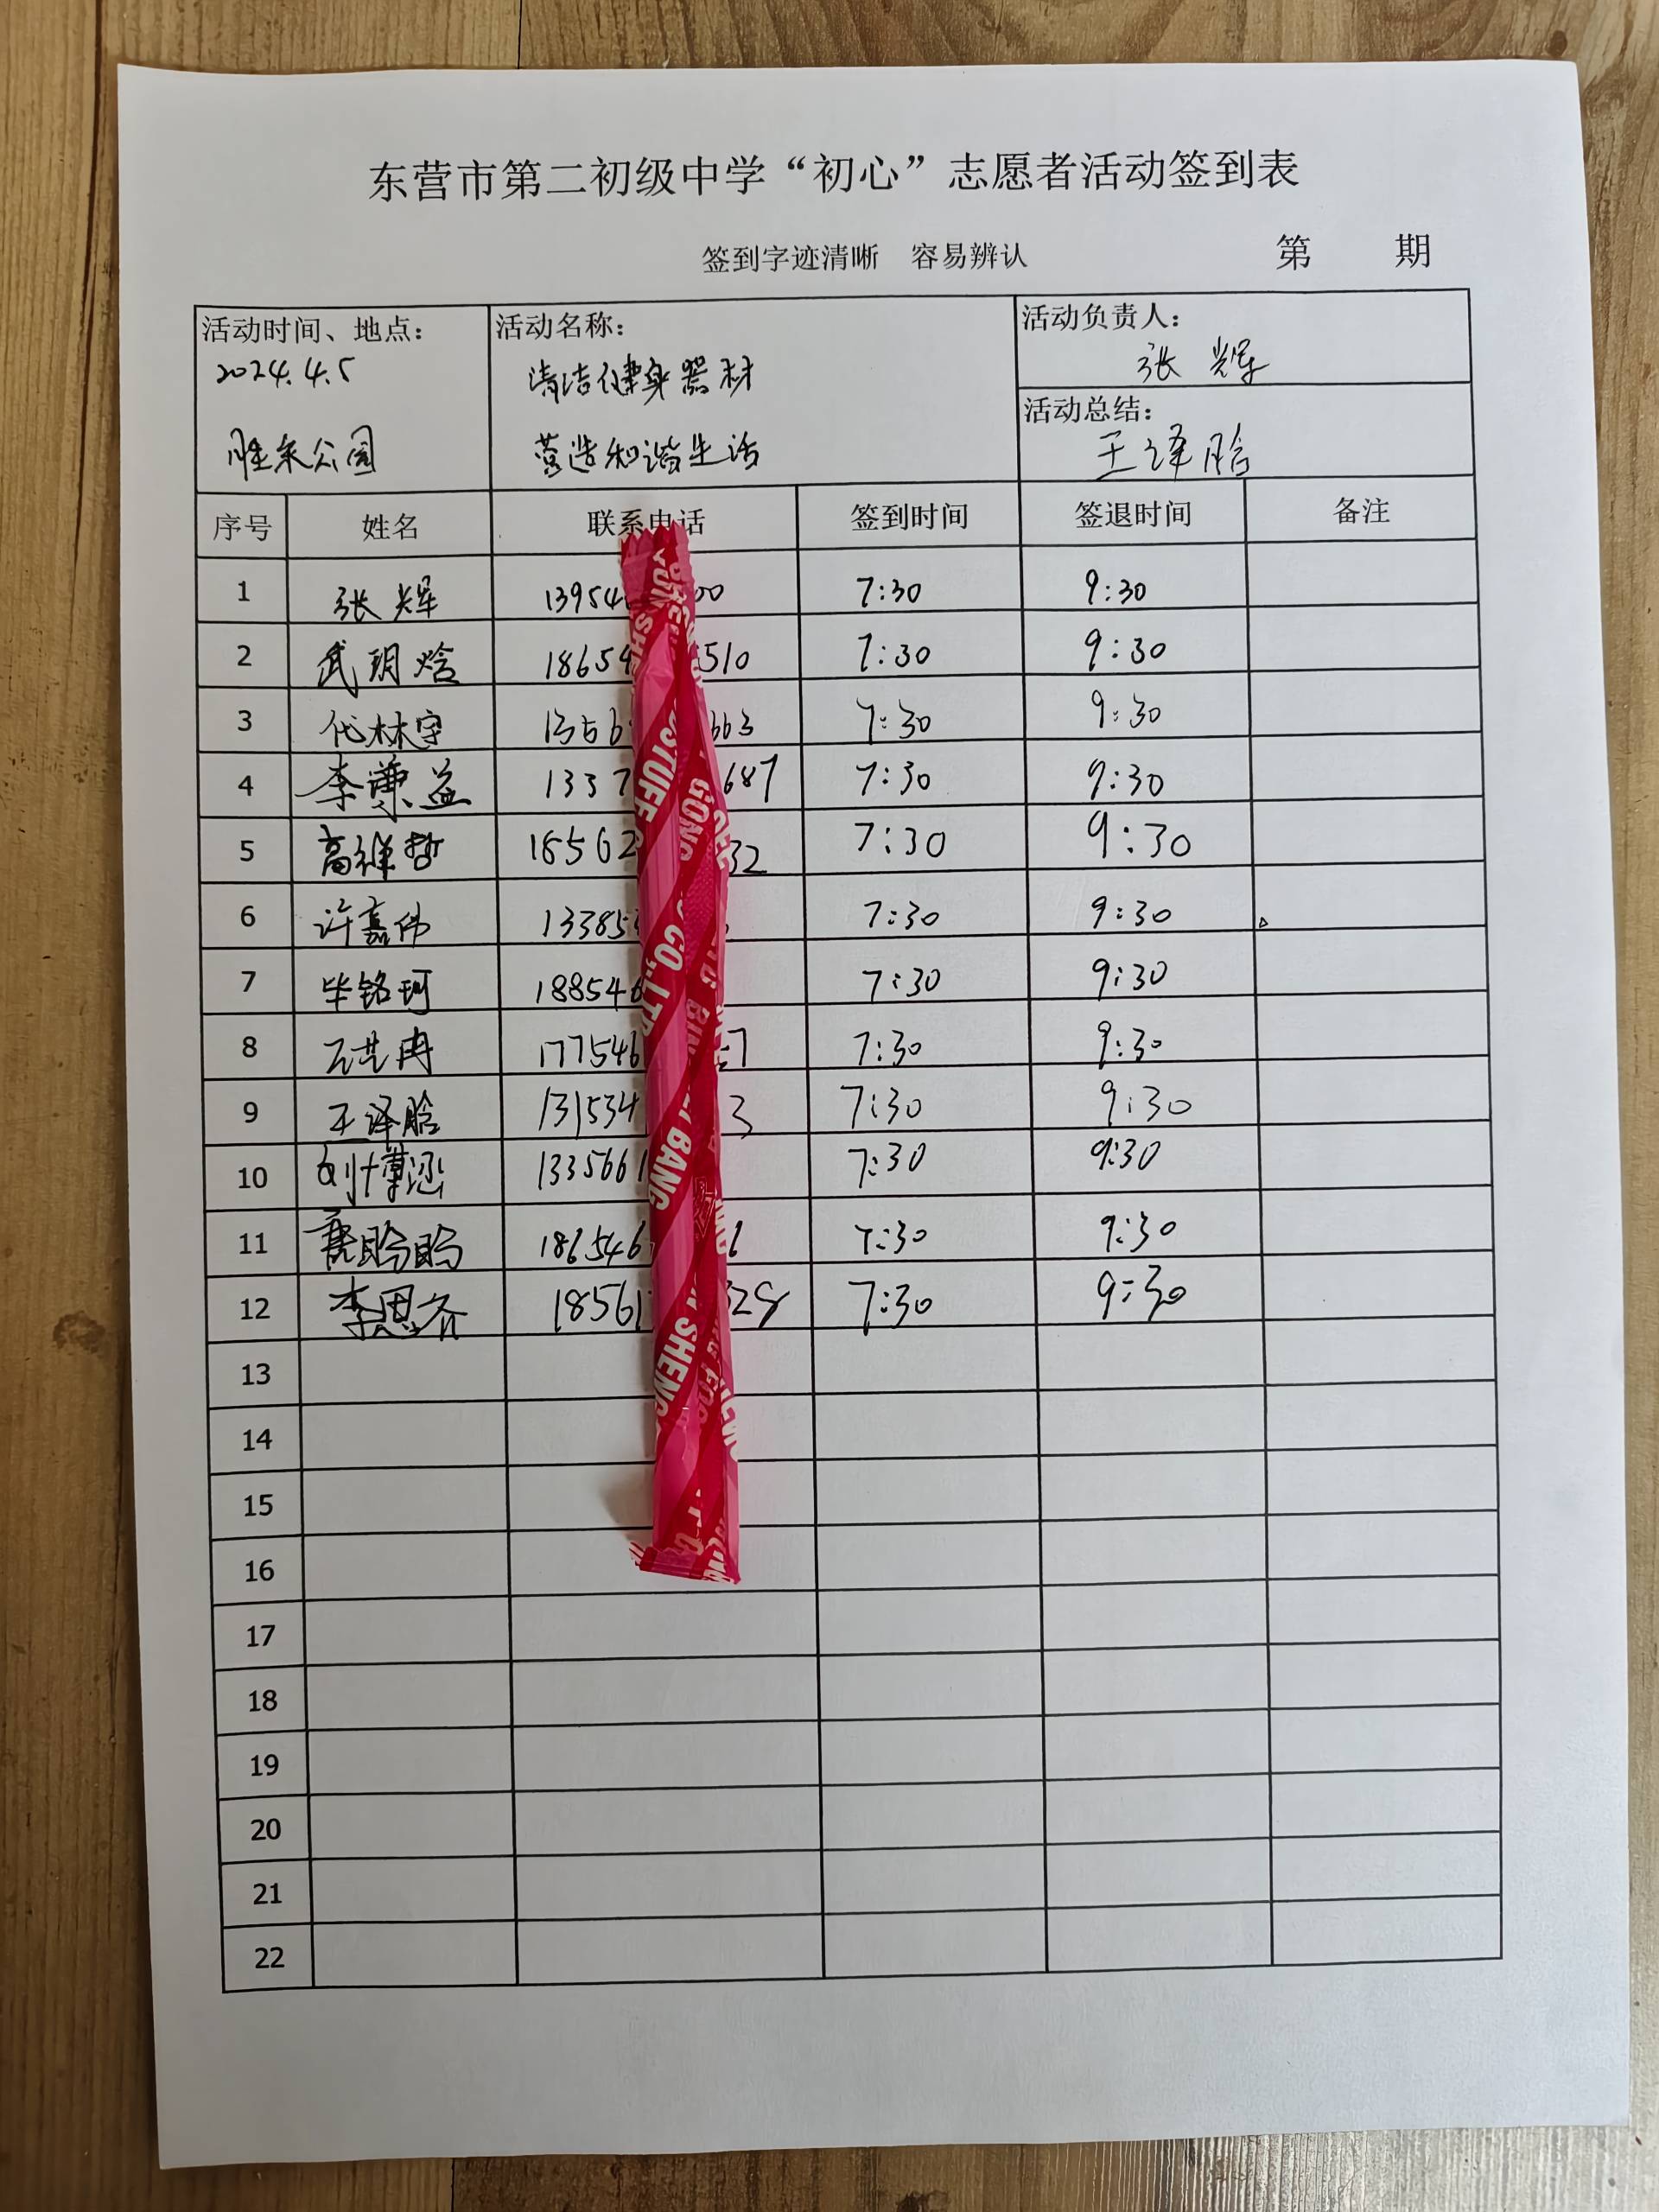 东营市第二初级中学“初心”志愿者活动签到表
签到字迹清晰 容易辨认 第 期
活动时间、地点： 活动名称： 活动负责人：
2024.4.5 清洁健身器材 张辉
活动总结：
胜采公园 营造和谐生活 王泽晗
序号 姓名 联系电话 签到时间 签退时间 备注
1 张辉 13954 00 7:30 9:30
2 武玥焓 18654 510 7:30 9:30
3 代林宇 1356 663 7:30 9:30
4 李兼益 1337 687 7:30 9:30
5 高祥哲 18562 32 7:30 9:30
6 许嘉伟 13385 7:30 9:30
7 毕铭珂 188546 7:30 9:30
8 王艺冉 177546 7 7:30 9:30
9 王泽晗 131534 3 7:30 9:30
10 刘博 1335661 7:30 9:30
11 186546 6 7:30 9:30
12 李思齐 18561 328 7:30 9:30
13
14
15
16
17
18
19
20
21
22
STUFF
GONG
CO.,LTD
BANG
SHENG